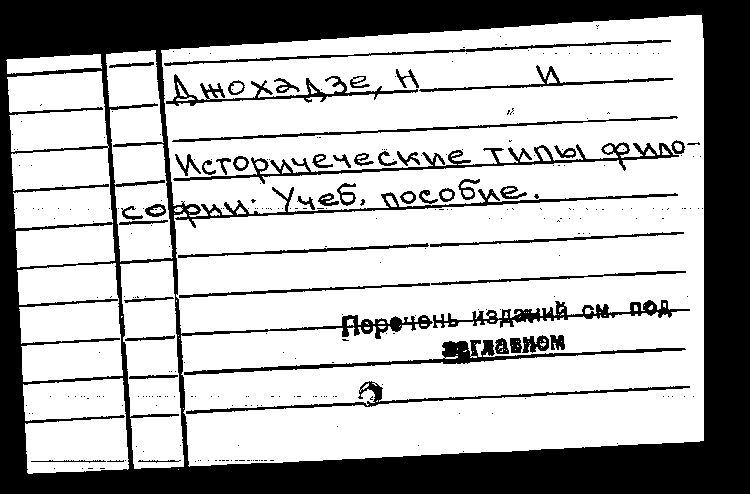 Джохадзе, Н И
Историчеческие типы фило-
софии: Учеб. пособие.
Перечень изданий см. под
заглавном